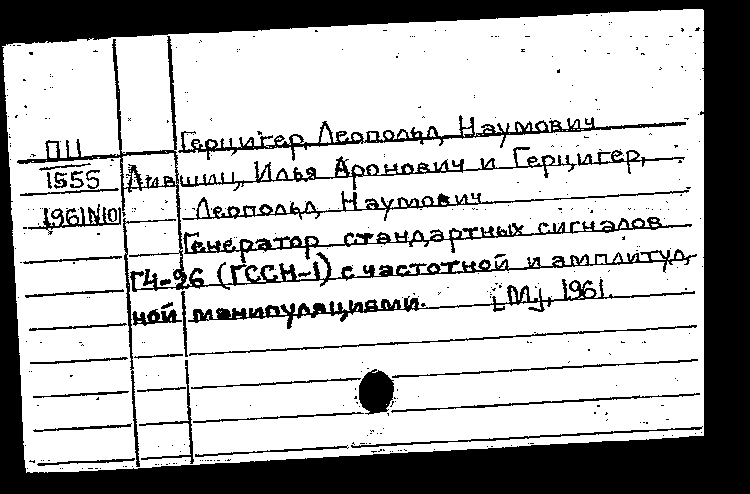 Герцигер, Леопольд Наумович
П11
1555
1961N10
Лившиц, Илья Аронович и Герцигер,
Леопольд Наумович
Генератор стандартных сигналов
Г4-26 (ГССН-1) с частотной и амплитуд-
ной манипуляциями. [М], 1961.